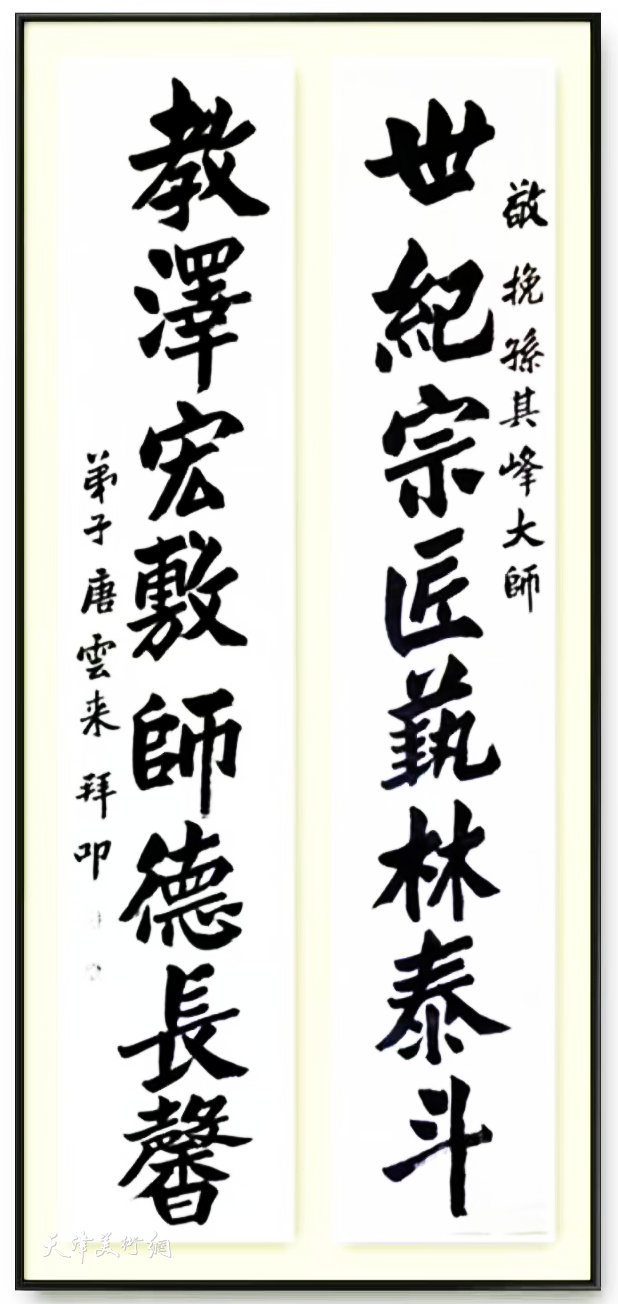 敬挽孫其峰大師
世紀宗匠藝林泰斗
教澤宏敷師德長馨
弟子唐雲来拜叩
天津美術網